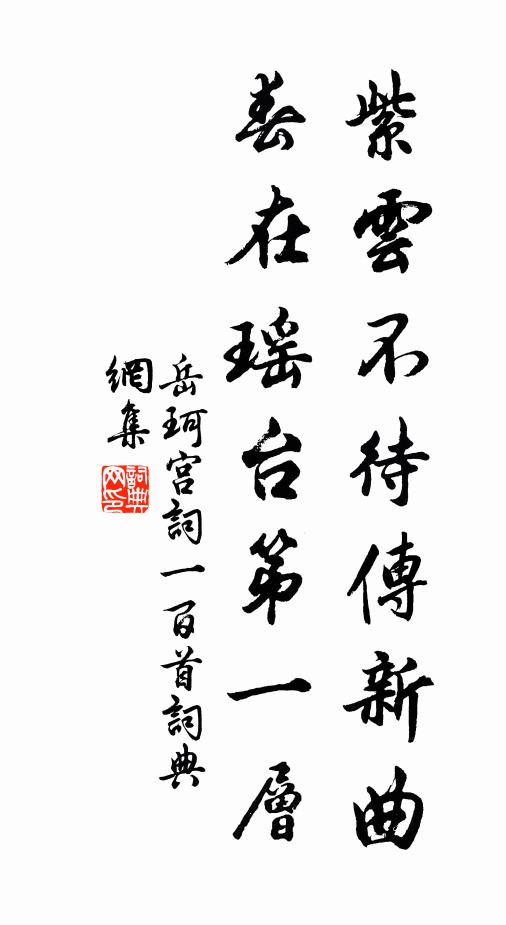 紫雲不待傳新曲
春在瑶台第一層
岳珂宮詞一百首詞典
網集
詞典
网印